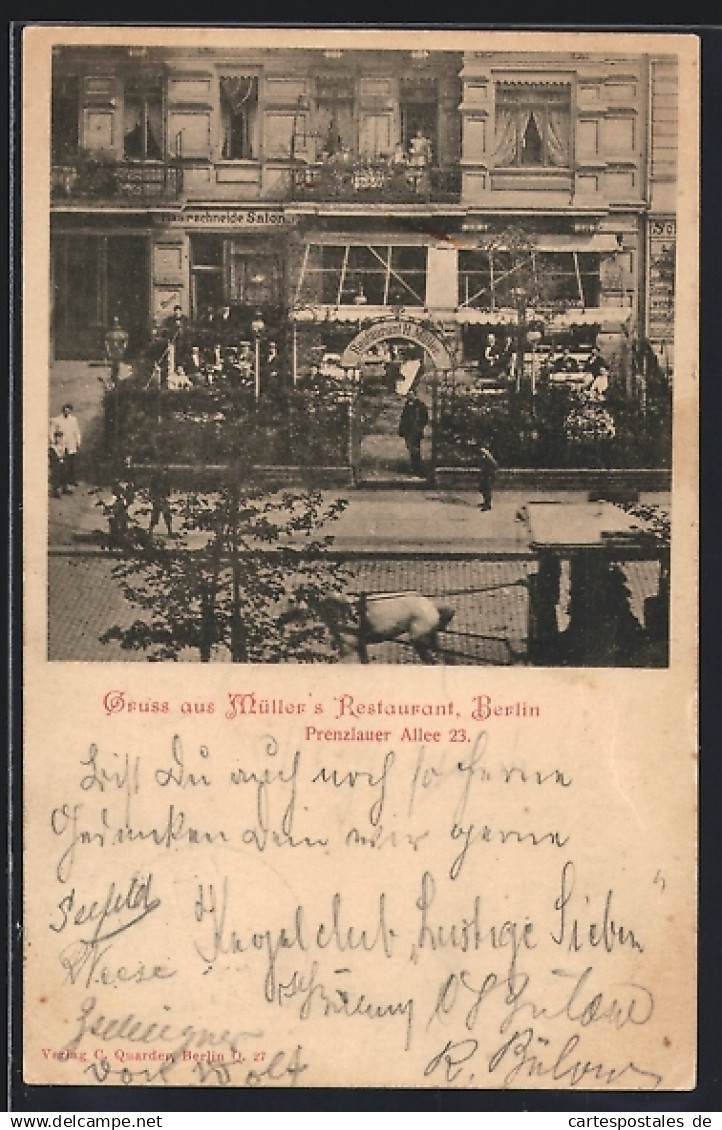 Haarschneide Salon
Restaurant H. Müller
Gruss aus Müller's Restaurant, Berlin
Prenzlauer Allee 23.
Bist Du auch noch so ferne
Gedenken Dein wir gerne
Seefeld
Kegelclub „Lustige Sieben“
Wiese
R. Bülow
Verlag C. Quarder, Berlin O. 27
von Wolf
delcampe.net
cartespostales de